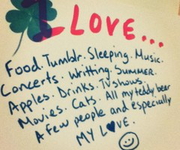 I LOVE...
Food. Tumblr. Sleeping. Music.
Concerts. Writting. SUMMER.
Apples. Drinks. TVshows.
Movies. Cats. All my teddy bear
A few people and especially
MY L♥VE.